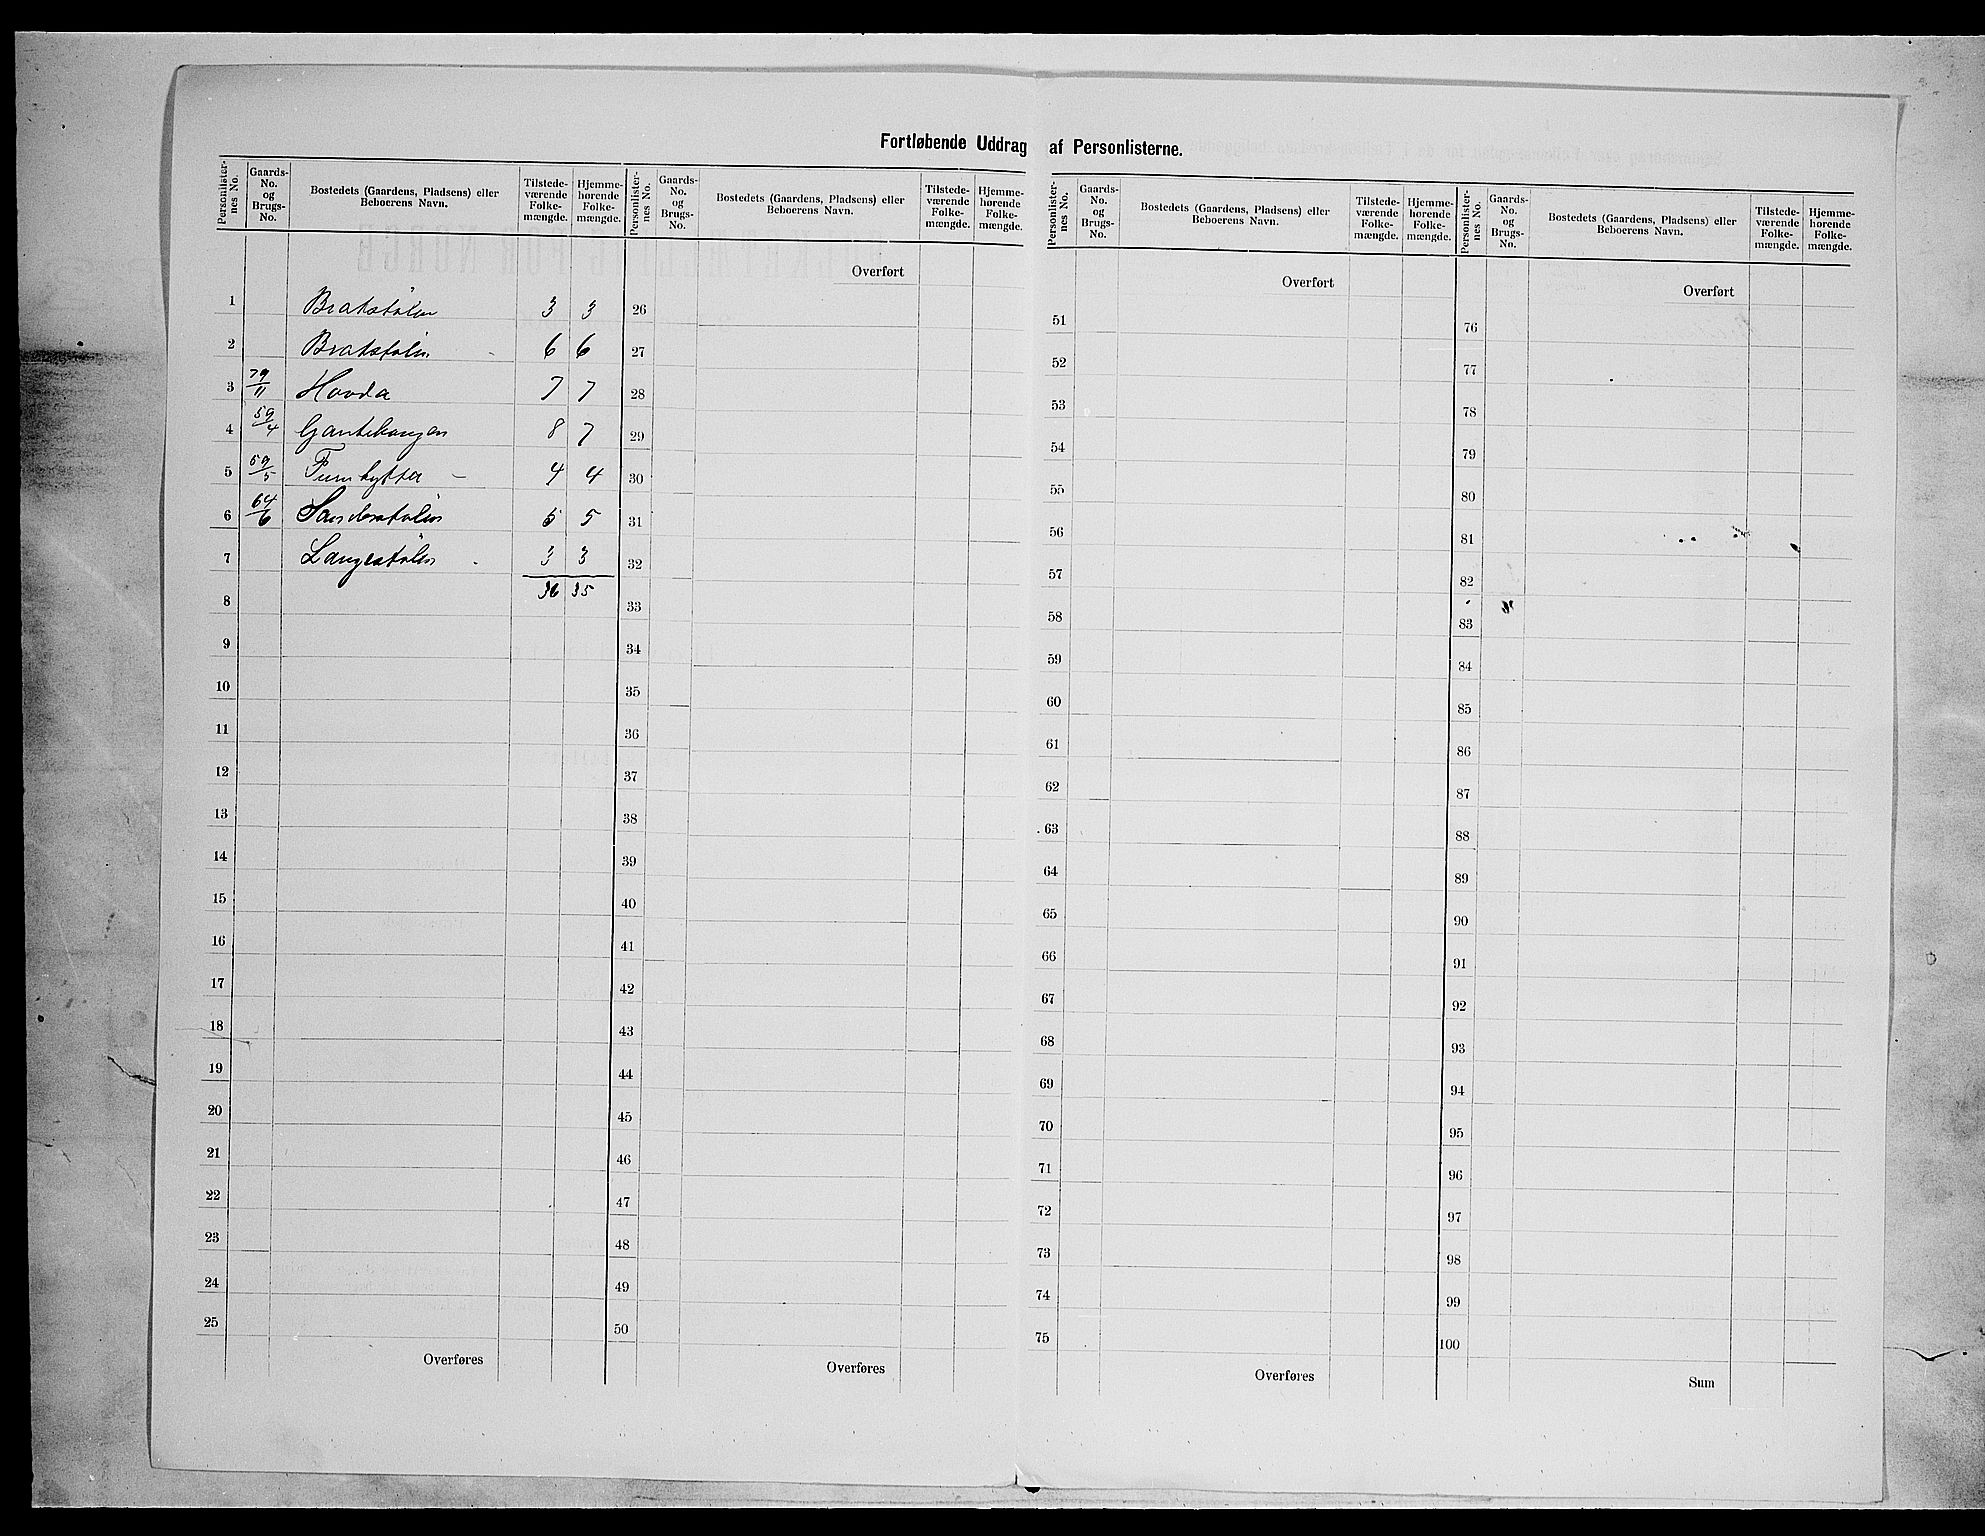 Fortløbende Uddrag af Personlisterne.
Personlister-nes No. Gaards-No. og Brugs-No. Bostedets (Gaardens, Pladsens) eller Beboerens Navn. Tilstede-værende Folke-mængde. Hjemme-hørende Folke-mængde.
1 Bratstølen 3 3
2 Bratstølen 6 6
3 79/11 Hovda 7 7
4 59/4 Gantehaugen 8 7
5 59/5 Furuhytta – 4 4
6 64/6 Sanderstølen 5 5
7 Langestølen 3 3
8 36 35
9
10
11
12
13
14
15
16
17
18
19
20
21
22
23
24
25
Overføres
Personlister-nes No. Gaards-No. og Brugs-No. Bostedets (Gaardens, Pladsens) eller Beboerens Navn. Tilstede-værende Folke-mængde. Hjemme-hørende Folke-mængde.
Overført
26
27
28
29
30
31
32
33
34
35
36
37
38
39
40
41
42
43
44
45
46
47
48
49
50
Overføres
Personlister-nes No. Gaards-No. og Brugs-No. Bostedets (Gaardens, Pladsens) eller Beboerens Navn. Tilstede-værende Folke-mængde. Hjemme-hørende Folke-mængde.
Overført
51
52
53
54
55
56
57
58
59
60
61
62
63
64
65
66
67
68
69
70
71
72
73
74
75
Overføres
Personlister-nes No. Gaards-No. og Brugs-No. Bostedets (Gaardens, Pladsens) eller Beboerens Navn. Tilstede-værende Folke-mængde. Hjemme-hørende Folke-mængde.
Overført
76
77
78
79
80
81
82
83
84
85
86
87
88
89
90
91
92
93
94
95
96
97
98
99
100
Sum